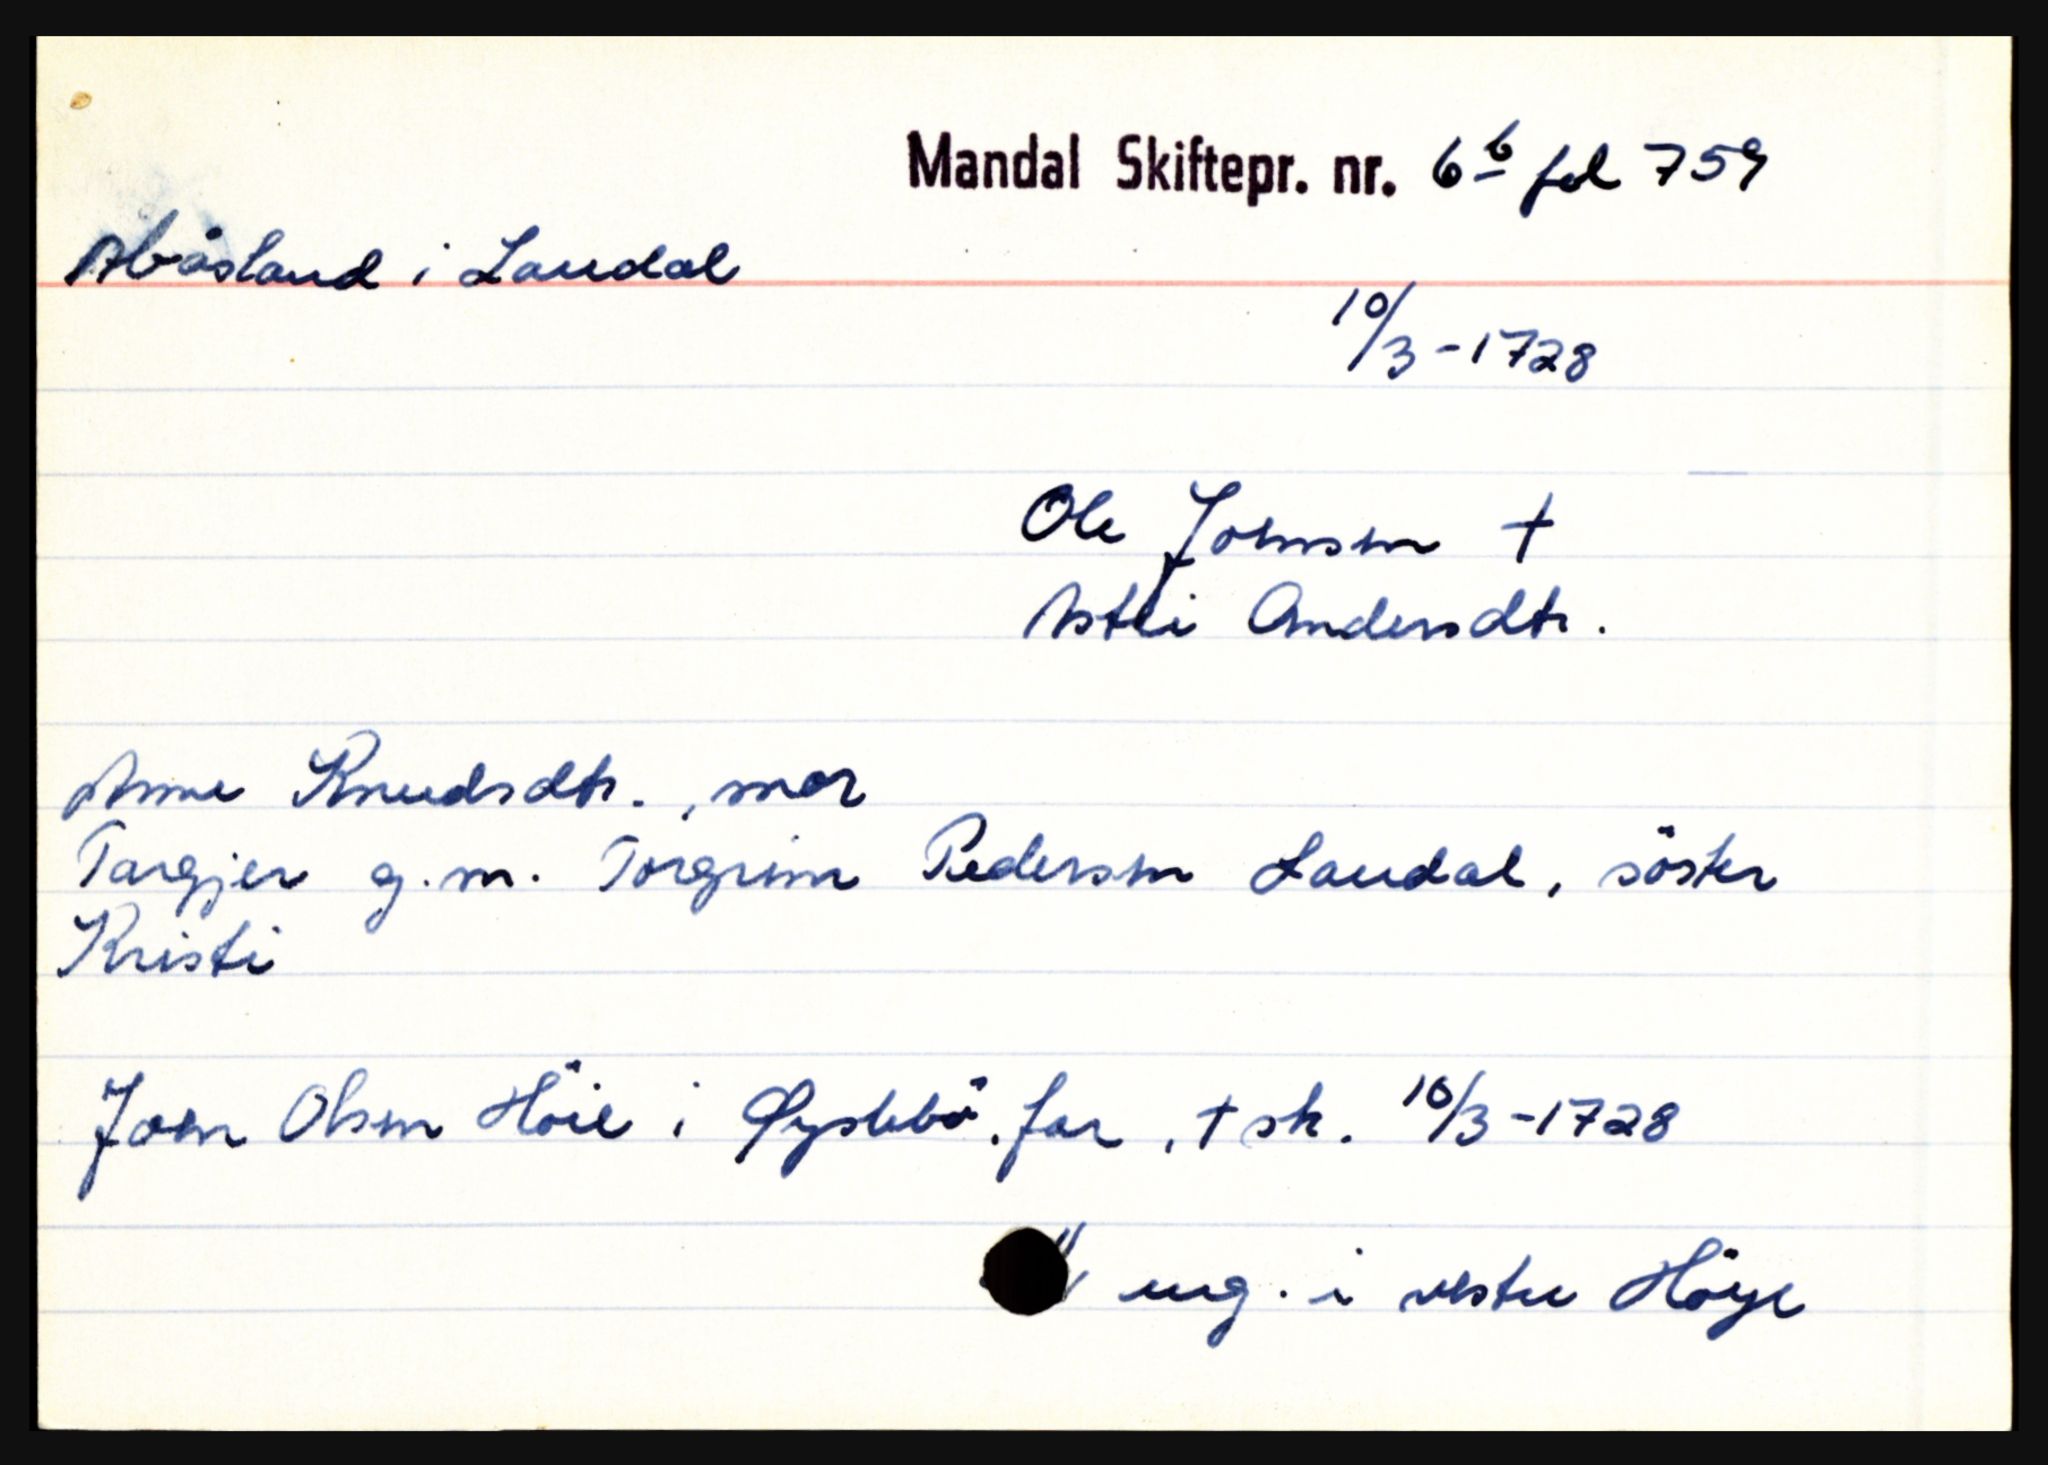 Mandal Skiftepr. nr. 6b fol 759
Abåsland i Laudal
10/3-1728
Ole Jonnsen †
Astri Andersdtr.
Anne Knudsdtr., mor
Targjer g.m. Torgrim Pedersen Laudal, söster
Kristi
Joen Olsen Höie i Øyslebö, far, † sk. 10/3-1728
" ug. i vestre Höye